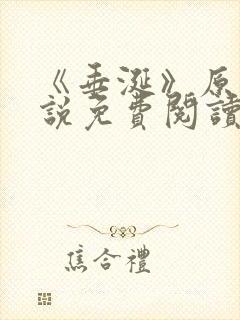 《垂涎》原
說免費閱讀
焦合禮